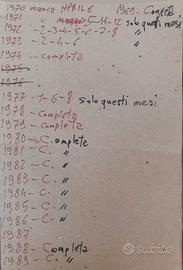 1970 manca APRILE 1969. Completa
1971 " 5-11-12 sob questi mesi
1972 - 2-3-4-5-6-7-8 "
1973 - 2-4-6 "
1974 - completa
1975
1976
1977 - 1-6-8 sob questi mesi
1978 - Completa
1979 - completa
1980 - C. completa
1981 - C. "
1982 - C. "
1983 - C. "
1984 - C. "
1985 - C. "
1986 - C. "
1987
1988 - Completa
1989 - C. "
subito